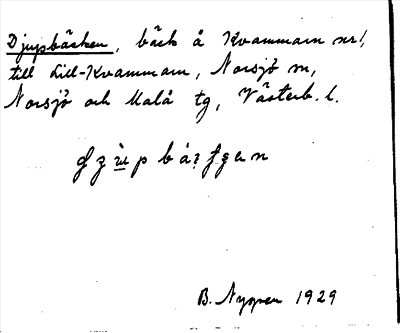 Djupbäcken, bäck å Kvammarn nr 1,
till Lid-Kvammarn, Norsjö sn,
Norsjö och Malå tg, Västerb. l.
B. Nygren 1929